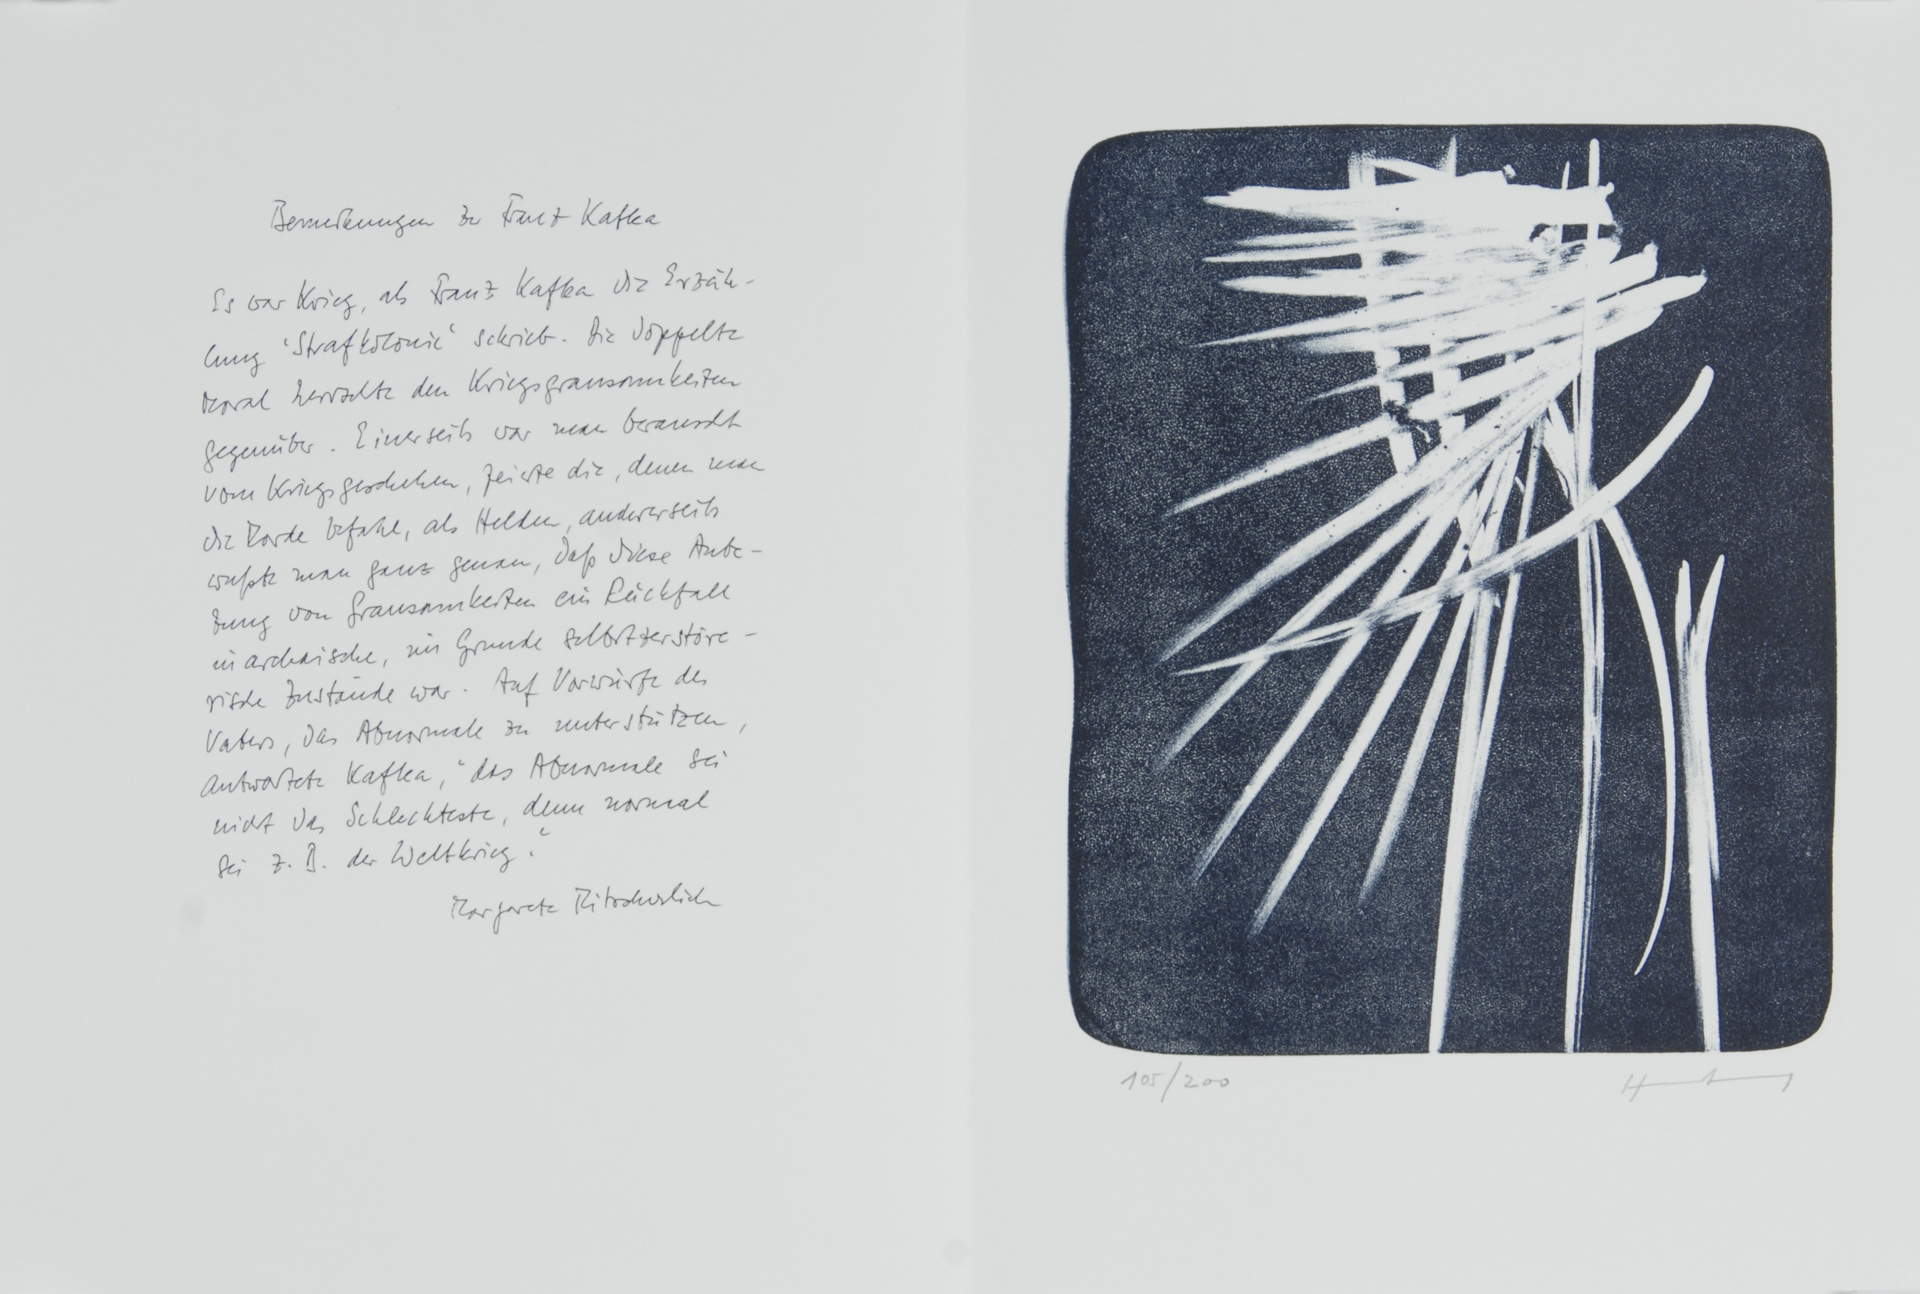 Bemerkungen zu Franz Kafka
Es war Krieg, als Franz Kafka die Erzäh-
lung 'Strafkolonie' schrieb. Die doppelte
Moral herrschte den Kriegsgrausamkeiten
gegenüber. Einerseits war man berauscht
vom Kriegsgeschehen, feierte die, denen man
die Morde befahl, als Helden, andererseits
wußte man ganz genau, daß diese Anbe-
tung von Grausamkeiten ein Rückfall
in archaische, im Grunde selbstzerstöre-
rische Zustände war. Auf Vorwürfe des
Vaters, das Abnormale zu unterstützen,
antwortete Kafka, "das Abnormale sei
nicht das Schlechteste, denn normal
sei z.B. der Weltkrieg."
Margarete Mitscherlich
105/200